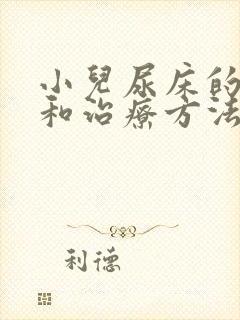 小兒尿床的
和治療方法
利德